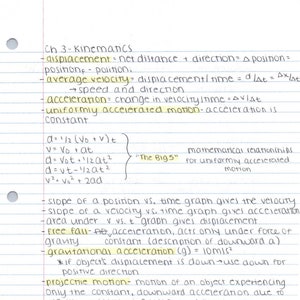 Ch 3 - Kinematics
- displacement = net distance + direction = Δ position =
position_f - position_i
- average velocity = displacement/time = d/Δt = Δx/Δt
→ speed and direction
- acceleration = change in velocity/time = Δv/Δt
- uniformly accelerated motion - acceleration is
constant
d = 1/2 (v₀ + v) t
v = v₀ + at
d = v₀t + 1/2at²
d = vt - 1/2at²
v² = v₀² + 2ad
"The Big 5"
mathematical relationships
for uniformly accelerated
motion
- slope of a position vs. time graph gives the velocity
- slope of a velocity vs. time graph gives acceleration
- area under v vs. t graph gives displacement
- free fall - acceleration, acts only under force of
gravity constant (description of downward a)
- gravitational acceleration (g) = 10m/s²
* if object's displacement is down → use down for
positive direction
- projectile motion - motion of an object experiencing
only the constant, downward acceleration due to